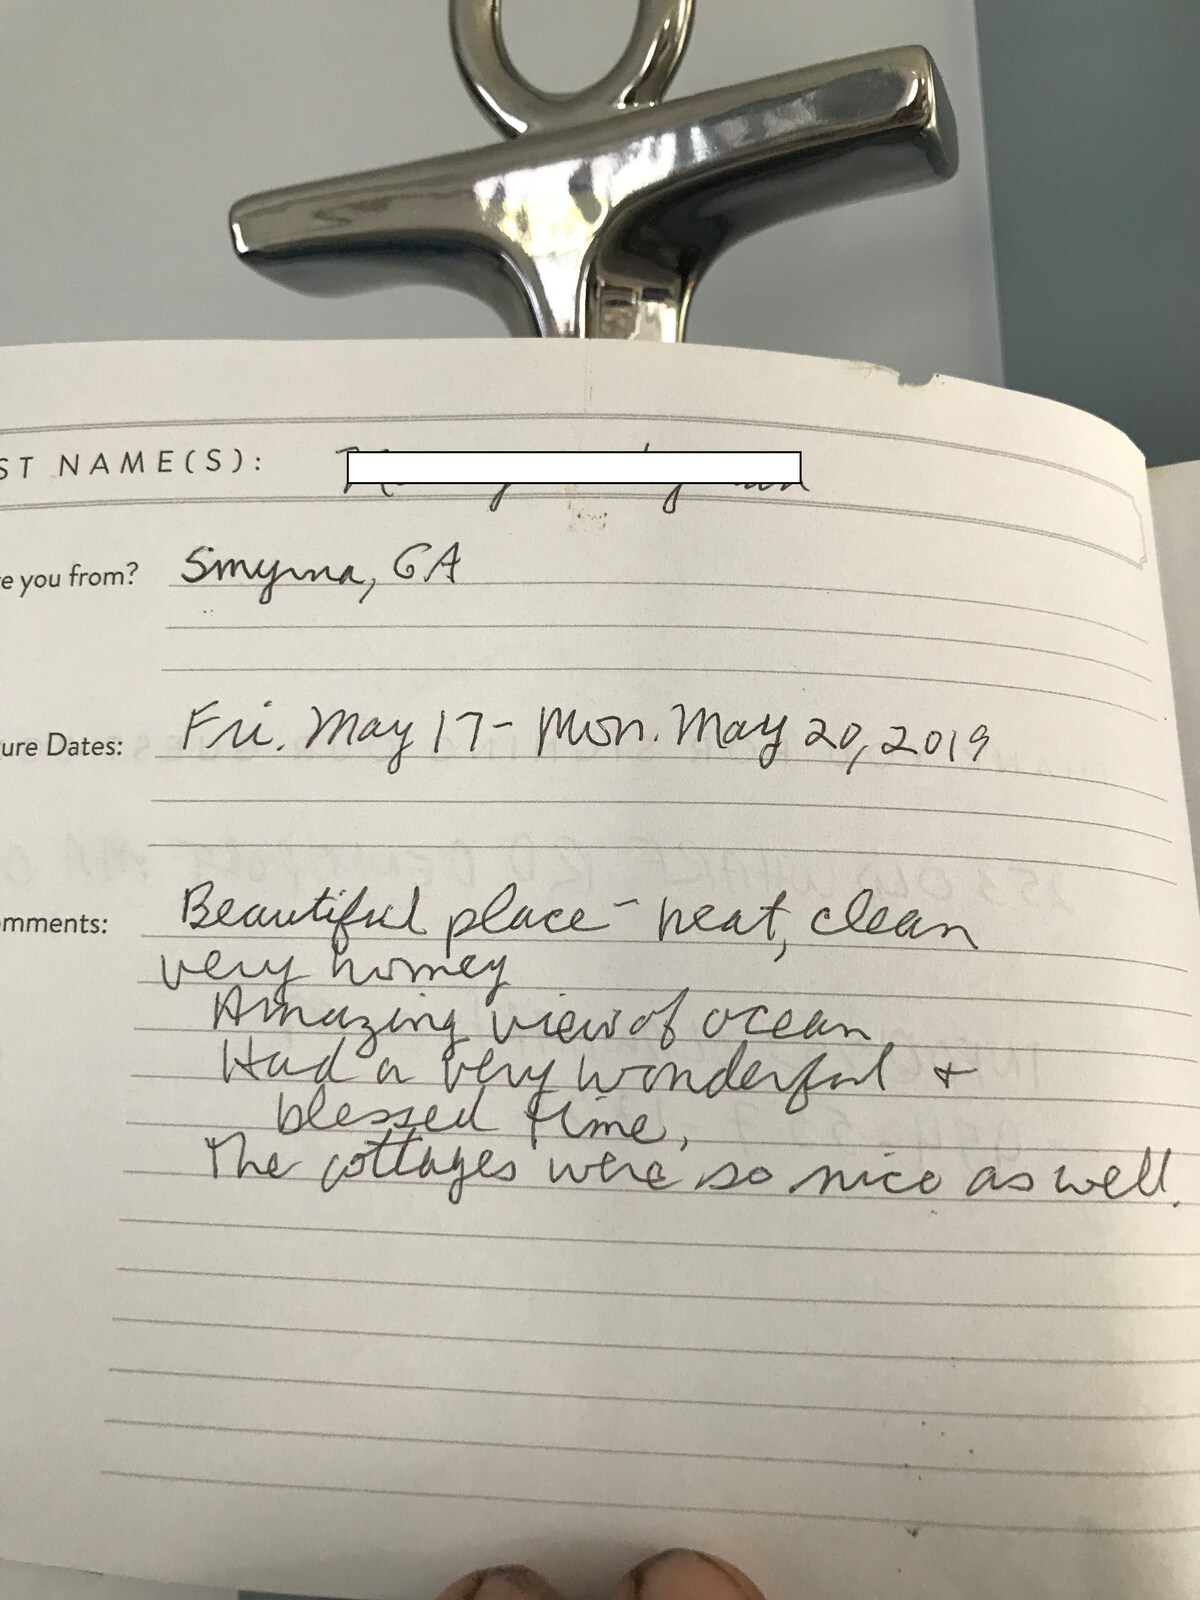 ST NAME(S):
e you from? Smyrna, GA
ure Dates: Fri. May 17 - Mon. May 20, 2019
omments: Beautiful place - neat, clean
very homey
Amazing view of ocean
Had a very wonderful +
blessed time,
The cottages were so nice as well.